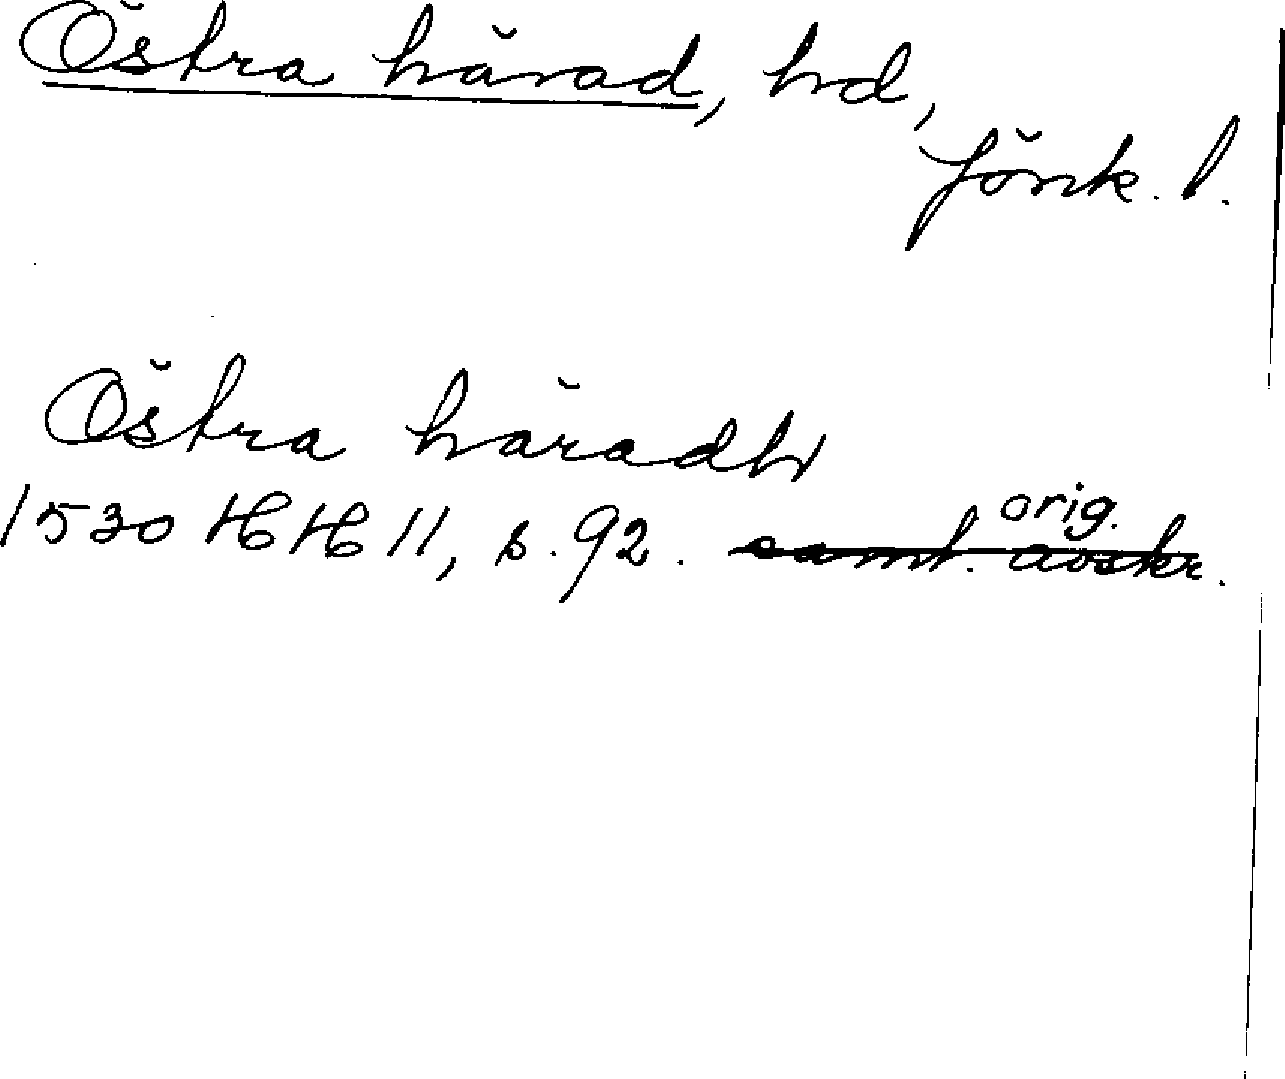 Östra härad, hd,
Jönk. l.
Östra häradh
orig.
1530 HH 11, s. 92. samt. avskr.